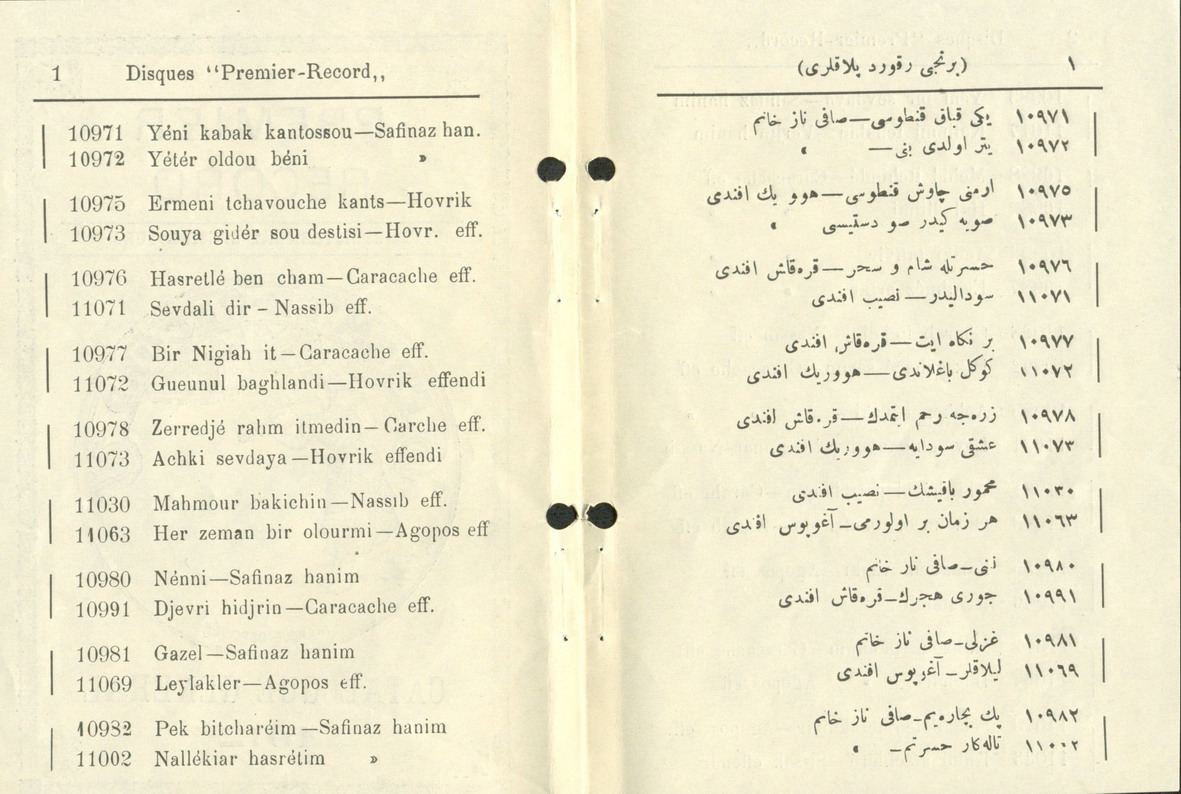 1 Disques “Premier-Record„
10971 Yéni kabak kantossou—Safinaz han.
10972 Yétér oldou béni »
10975 Ermeni tchavouche kants—Hovrik
10973 Souya gidér sou destisi—Hovr. eff.
10976 Hasretlé ben cham—Caracache eff.
11071 Sevdali dir - Nassib eff.
10977 Bir Nigiah it—Caracache eff.
11072 Gueunul baghlandi—Hovrik effendi
10978 Zerredjé rahm itmedin—Carche eff.
11073 Achki sevdaya—Hovrik effendi
11030 Mahmour bakichin—Nassıb eff.
11063 Her zeman bir olourmi—Agopos eff
10980 Nénni—Safinaz hanim
10991 Djevri hidjrin—Caracache eff.
10981 Gazel—Safinaz hanim
11069 Leylakler—Agopos eff.
10982 Pek bitcharéim—Safinaz hanim
11002 Nallékiar hasrétim »
١ (برنجى رقورد پلاقلرى)
١٠٩٧١ يكى قباق قنطوسى—صافى ناز خانم
١٠٩٧٢ يتر اولدى بنى— »
١٠٩٧٥ ارمنى چاوش قنطوسى—هوو يك افندى
١٠٩٧٣ صويه كيدر صو دستيسى »
١٠٩٧٦ حسرتله شام و سحر—قره‌قاش افندى
١١٠٧١ سوداليدر—نصيب افندى
١٠٩٧٧ بر نكاه ايت—قره‌قاش افندى
١١٠٧٢ كوكل باغلاندى—هووريك افندى
١٠٩٧٨ زره‌جه رحم ايتمدك—قره‌قاش افندى
١١٠٧٣ عشقى سودايه—هووريك افندى
١١٠٣٠ مخمور باقيشك—نصيب افندى
١١٠٦٣ هر زمان بر اولورمى—آغوپوس افندى
١٠٩٨٠ ننى—صافى ناز خانم
١٠٩٩١ جورى هجرك—قره‌قاش افندى
١٠٩٨١ غزلى—صافى ناز خانم
١١٠٦٩ ليلاقلر—آغوپوس افندى
١٠٩٨٢ پك بچاره‌يم—صافى ناز خانم
١١٠٠٢ ناله‌كار حسرتم— »